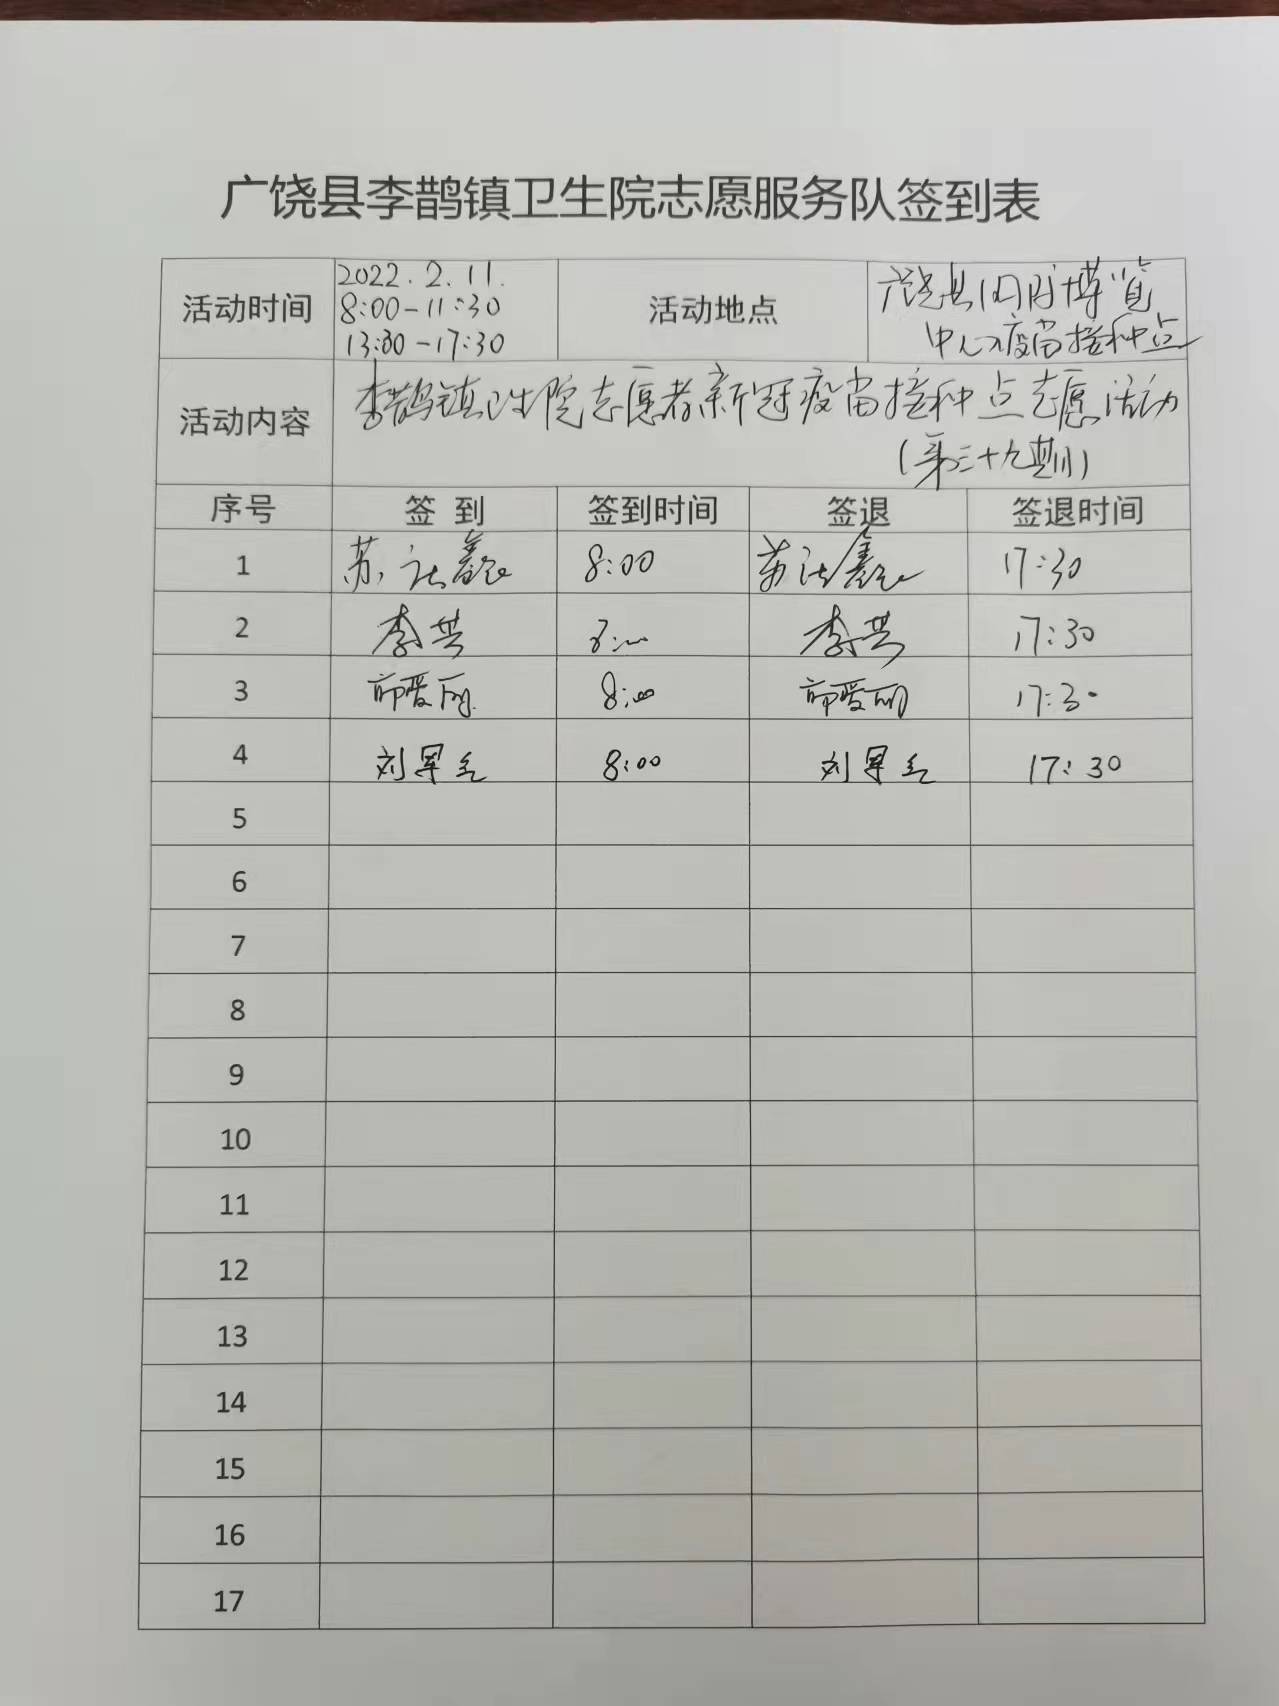 广饶县李鹊镇卫生院志愿服务队签到表
活动时间 2022.2.11. 8:00-11:30 13:30-17:30 活动地点 广饶县国际博览中心疫苗接种点
活动内容 李鹊镇卫生院志愿者新冠疫苗接种点志愿活动
(第三十九期)
序号 签到 签到时间 签退 签退时间
1 苏 8:00 苏 17:30
2 李芸 8:00 李芸 17:30
3 8:00 17:30
4 刘军 8:00 刘军 17:30
5
6
7
8
9
10
11
12
13
14
15
16
17